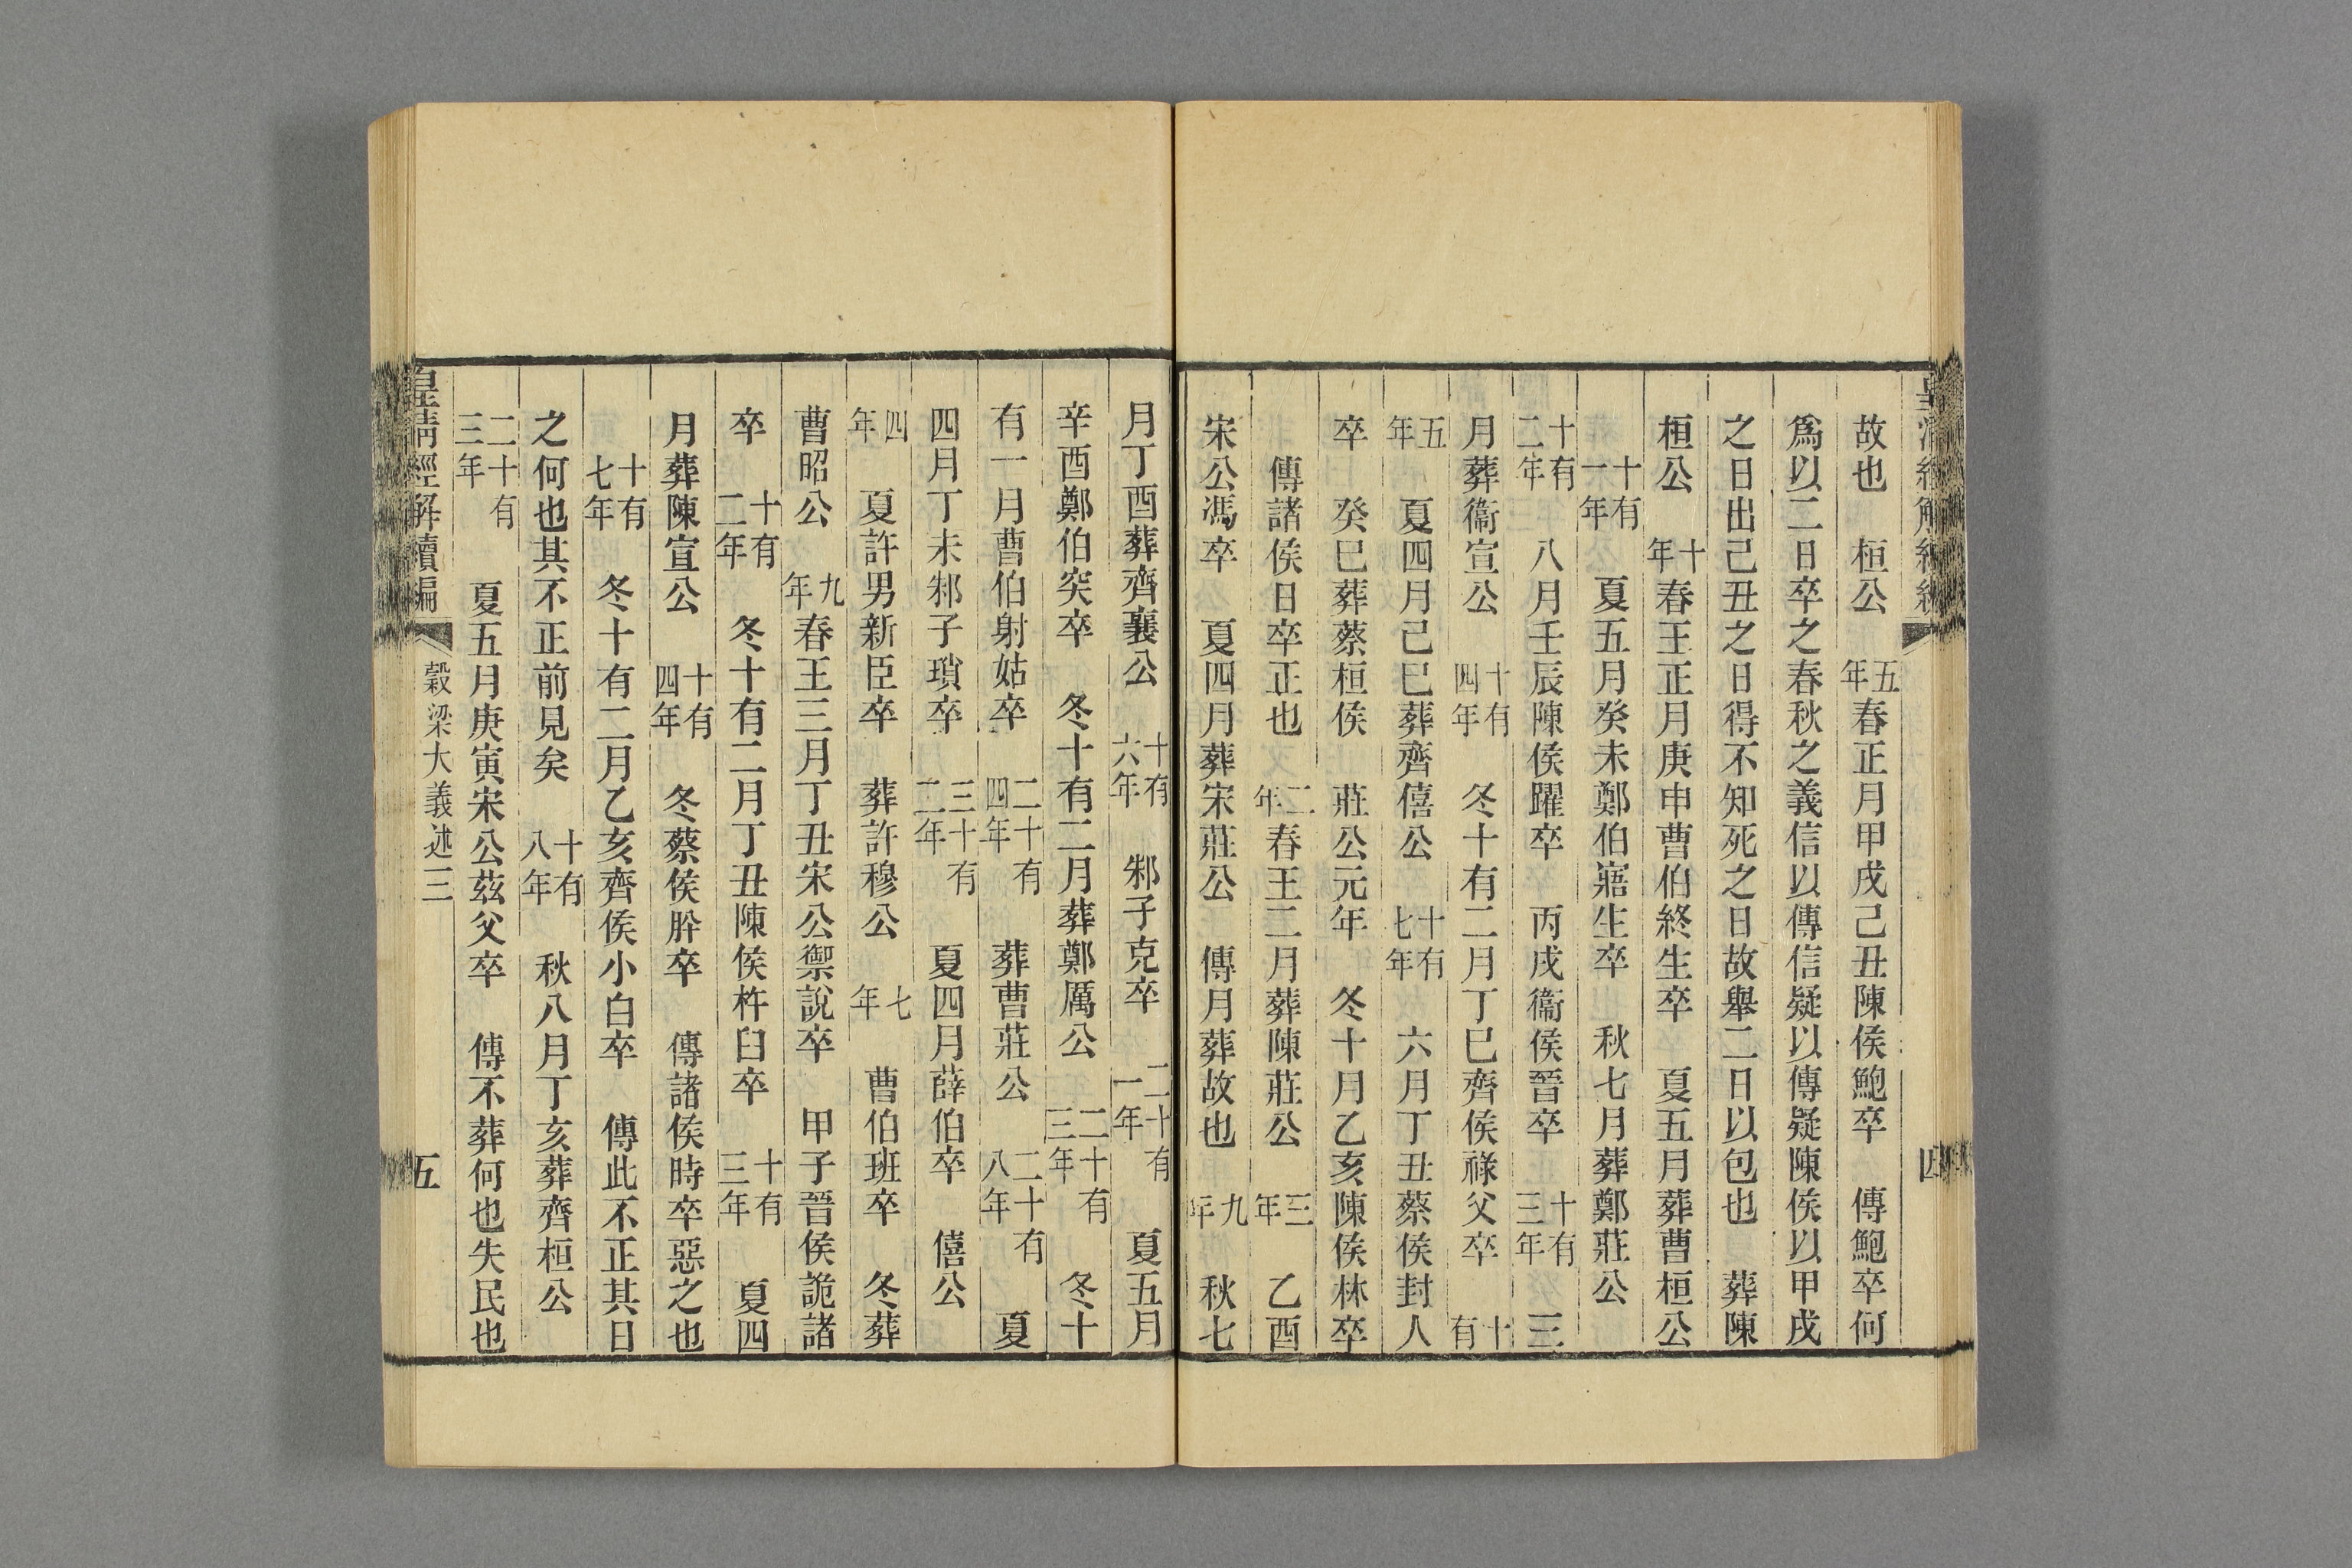 故也　桓公　五年春正月甲戌己丑陳侯鮑卒　傳鮑卒何
爲以二日卒之春秋之義信以傳信疑以傳疑陳侯以甲戌
之日出己丑之日得不知死之日故舉二日以包也　葬陳
桓公　十年春王正月庚申曹伯終生卒　夏五月葬曹桓公
十有一年　夏五月癸未鄭伯寤生卒　秋七月葬鄭莊公
十有二年　八月壬辰陳侯躍卒　丙戌衞侯晉卒　十有三年　三
月葬衞宣公　十有四年　冬十有二月丁巳齊侯祿父卒　十有
五年　夏四月己巳葬齊僖公　十有七年　六月丁丑蔡侯封人
卒　癸巳葬蔡桓侯　莊公元年　冬十月乙亥陳侯林卒
傳諸侯日卒正也　二年春王二月葬陳莊公　三年　乙酉
宋公馮卒　夏四月葬宋莊公　傳月葬故也　九年　秋七
月丁酉葬齊襄公　十有六年　邾子克卒　二十有一年　夏五月
辛酉鄭伯突卒　冬十有二月葬鄭厲公　二十有三年　冬十
有一月曹伯射姑卒　二十有四年　葬曹莊公　二十有八年　夏
四月丁未邾子瑣卒　三十有二年　夏四月薛伯卒　僖公
四年　夏許男新臣卒　葬許穆公　七年　曹伯班卒　冬葬
曹昭公　九年春王三月丁丑宋公禦說卒　甲子晉侯詭諸
卒　十有二年　冬十有二月丁丑陳侯杵臼卒　十有三年　夏四
月葬陳宣公　十有四年　冬蔡侯肸卒　傳諸侯時卒惡之也
十有七年　冬十有二月乙亥齊侯小白卒　傳此不正其日
之何也其不正前見矣　十有八年　秋八月丁亥葬齊桓公
二十有三年　夏五月庚寅宋公茲父卒　傳不葬何也失民也
皇清經解續編　穀梁大義述三　五